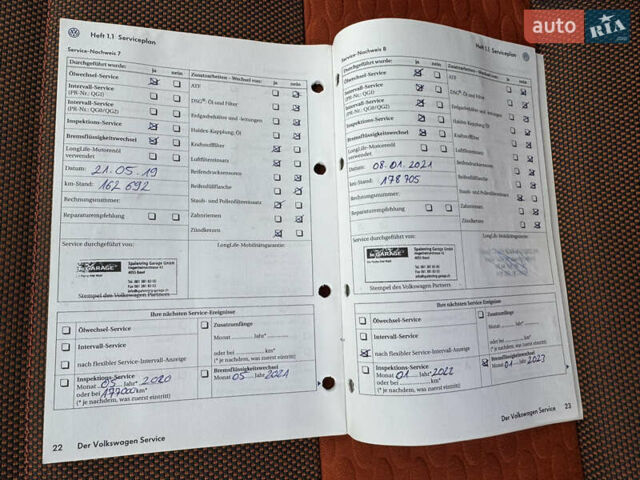 auto RIA
.com
Heft 1.1 Serviceplan
Service-Nachweis 7
Durchgeführt wurde: ja nein
Zusatzarbeiten - Wechsel von: ja nein
Ölwechsel-Service
ATF
Intervall-Service
(PR-Nr.: QG1)
DSG®: Öl und Filter
Intervall-Service
(PR-Nr.: QG0/QG2)
Erdgasbehälter und -leitungen
Inspektions-Service
Haldex-Kupplung, Öl
Bremsflüssigkeitswechsel
Kraftstofffilter
LongLife-Motorenöl
verwendet
Luftfiltereinsatz
Datum: 21.05.19
Reifendruckensensoren
km-Stand: 162 692
Reifenfüllflasche
Rechnungsnummer:
Staub- und Pollenfiltereinsatz
Reparaturempfehlung
Zahnriemen
Zündkerzen
Service durchgeführt von:
LongLife-Mobilitätsgarantie:
le GARAGE
Spalenring Garage GmbH
4055 Basel
Stempel des Volkswagen Partners
Ihre nächsten Service-Ereignisse
Ölwechsel-Service
Zusatzumfänge
Monat Jahr*
Intervall-Service
oder bei km*
(* je nachdem, was zuerst eintritt)
nach flexibler Service-Intervall-Anzeige
Inspektions-Service
Monat 05 Jahr* 2020
oder bei 177000 km*
(* je nachdem, was zuerst eintritt)
Bremsflüssigkeitswechsel
Monat 05 Jahr 2021
22 Der Volkswagen Service
Heft 1.1 Serviceplan
Service-Nachweis 8
Durchgeführt wurde: ja nein
Zusatzarbeiten - Wechsel von: ja nein
Ölwechsel-Service
ATF
Intervall-Service
(PR-Nr.: QG1)
DSG®: Öl und Filter
Intervall-Service
(PR-Nr.: QG0/QG2)
Erdgasbehälter und -leitungen
Inspektions-Service
Haldex-Kupplung, Öl
Bremsflüssigkeitswechsel
Kraftstofffilter
LongLife-Motorenöl
verwendet
Luftfiltereinsatz
Datum: 08.01.2021
Reifendrucksensoren
km-Stand: 178 705
Reifenfüllflasche
Rechnungsnummer:
Staub- und Pollenfiltereinsatz
Reparaturempfehlung
Zahnriemen
Zündkerzen
Service durchgeführt von:
LongLife-Mobilitätsgarantie:
le GARAGE
Spalenring Garage GmbH
4055 Basel
Stempel des Volkswagen Partners
Ihre nächsten Service-Ereignisse
Ölwechsel-Service
Zusatzumfänge
Monat Jahr*
Intervall-Service
oder bei km*
(* je nachdem, was zuerst eintritt)
nach flexibler Service-Intervall-Anzeige
Inspektions-Service
Monat 01 Jahr* 2022
oder bei km*
(* je nachdem, was zuerst eintritt)
Bremsflüssigkeitswechsel
Monat 01 Jahr 2023
Der Volkswagen Service 23